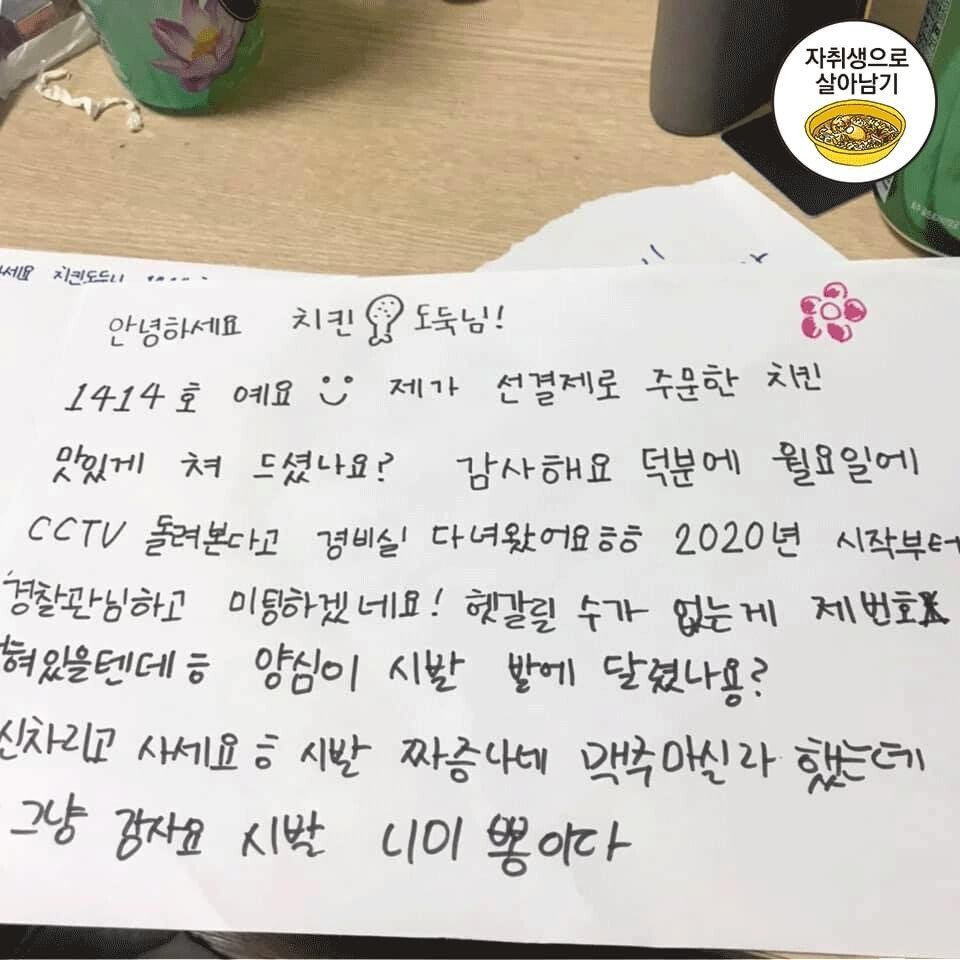 자취생으로
살아남기
치킨도두
안녕하세요 치킨 도둑님!
1414호 예요 제가 선결제로 주문한 치킨
맛있게 쳐 드셨나요? 감사해요 덕분에 월요일에
CCTV 돌려본다고 경비실 다녀왔어요ㅎㅎ 2020년 시작부터
경찰관님하고 미팅하겠네요! 헷갈릴 수가 없는게 제번호
혀있을텐데ㅎ 양심이 시발 발에 달렸나용?
신차리고 사세요ㅎ 시발 짜증나네 맥주마실라 했는데
그냥 감자요 시발 니미 뽕이다